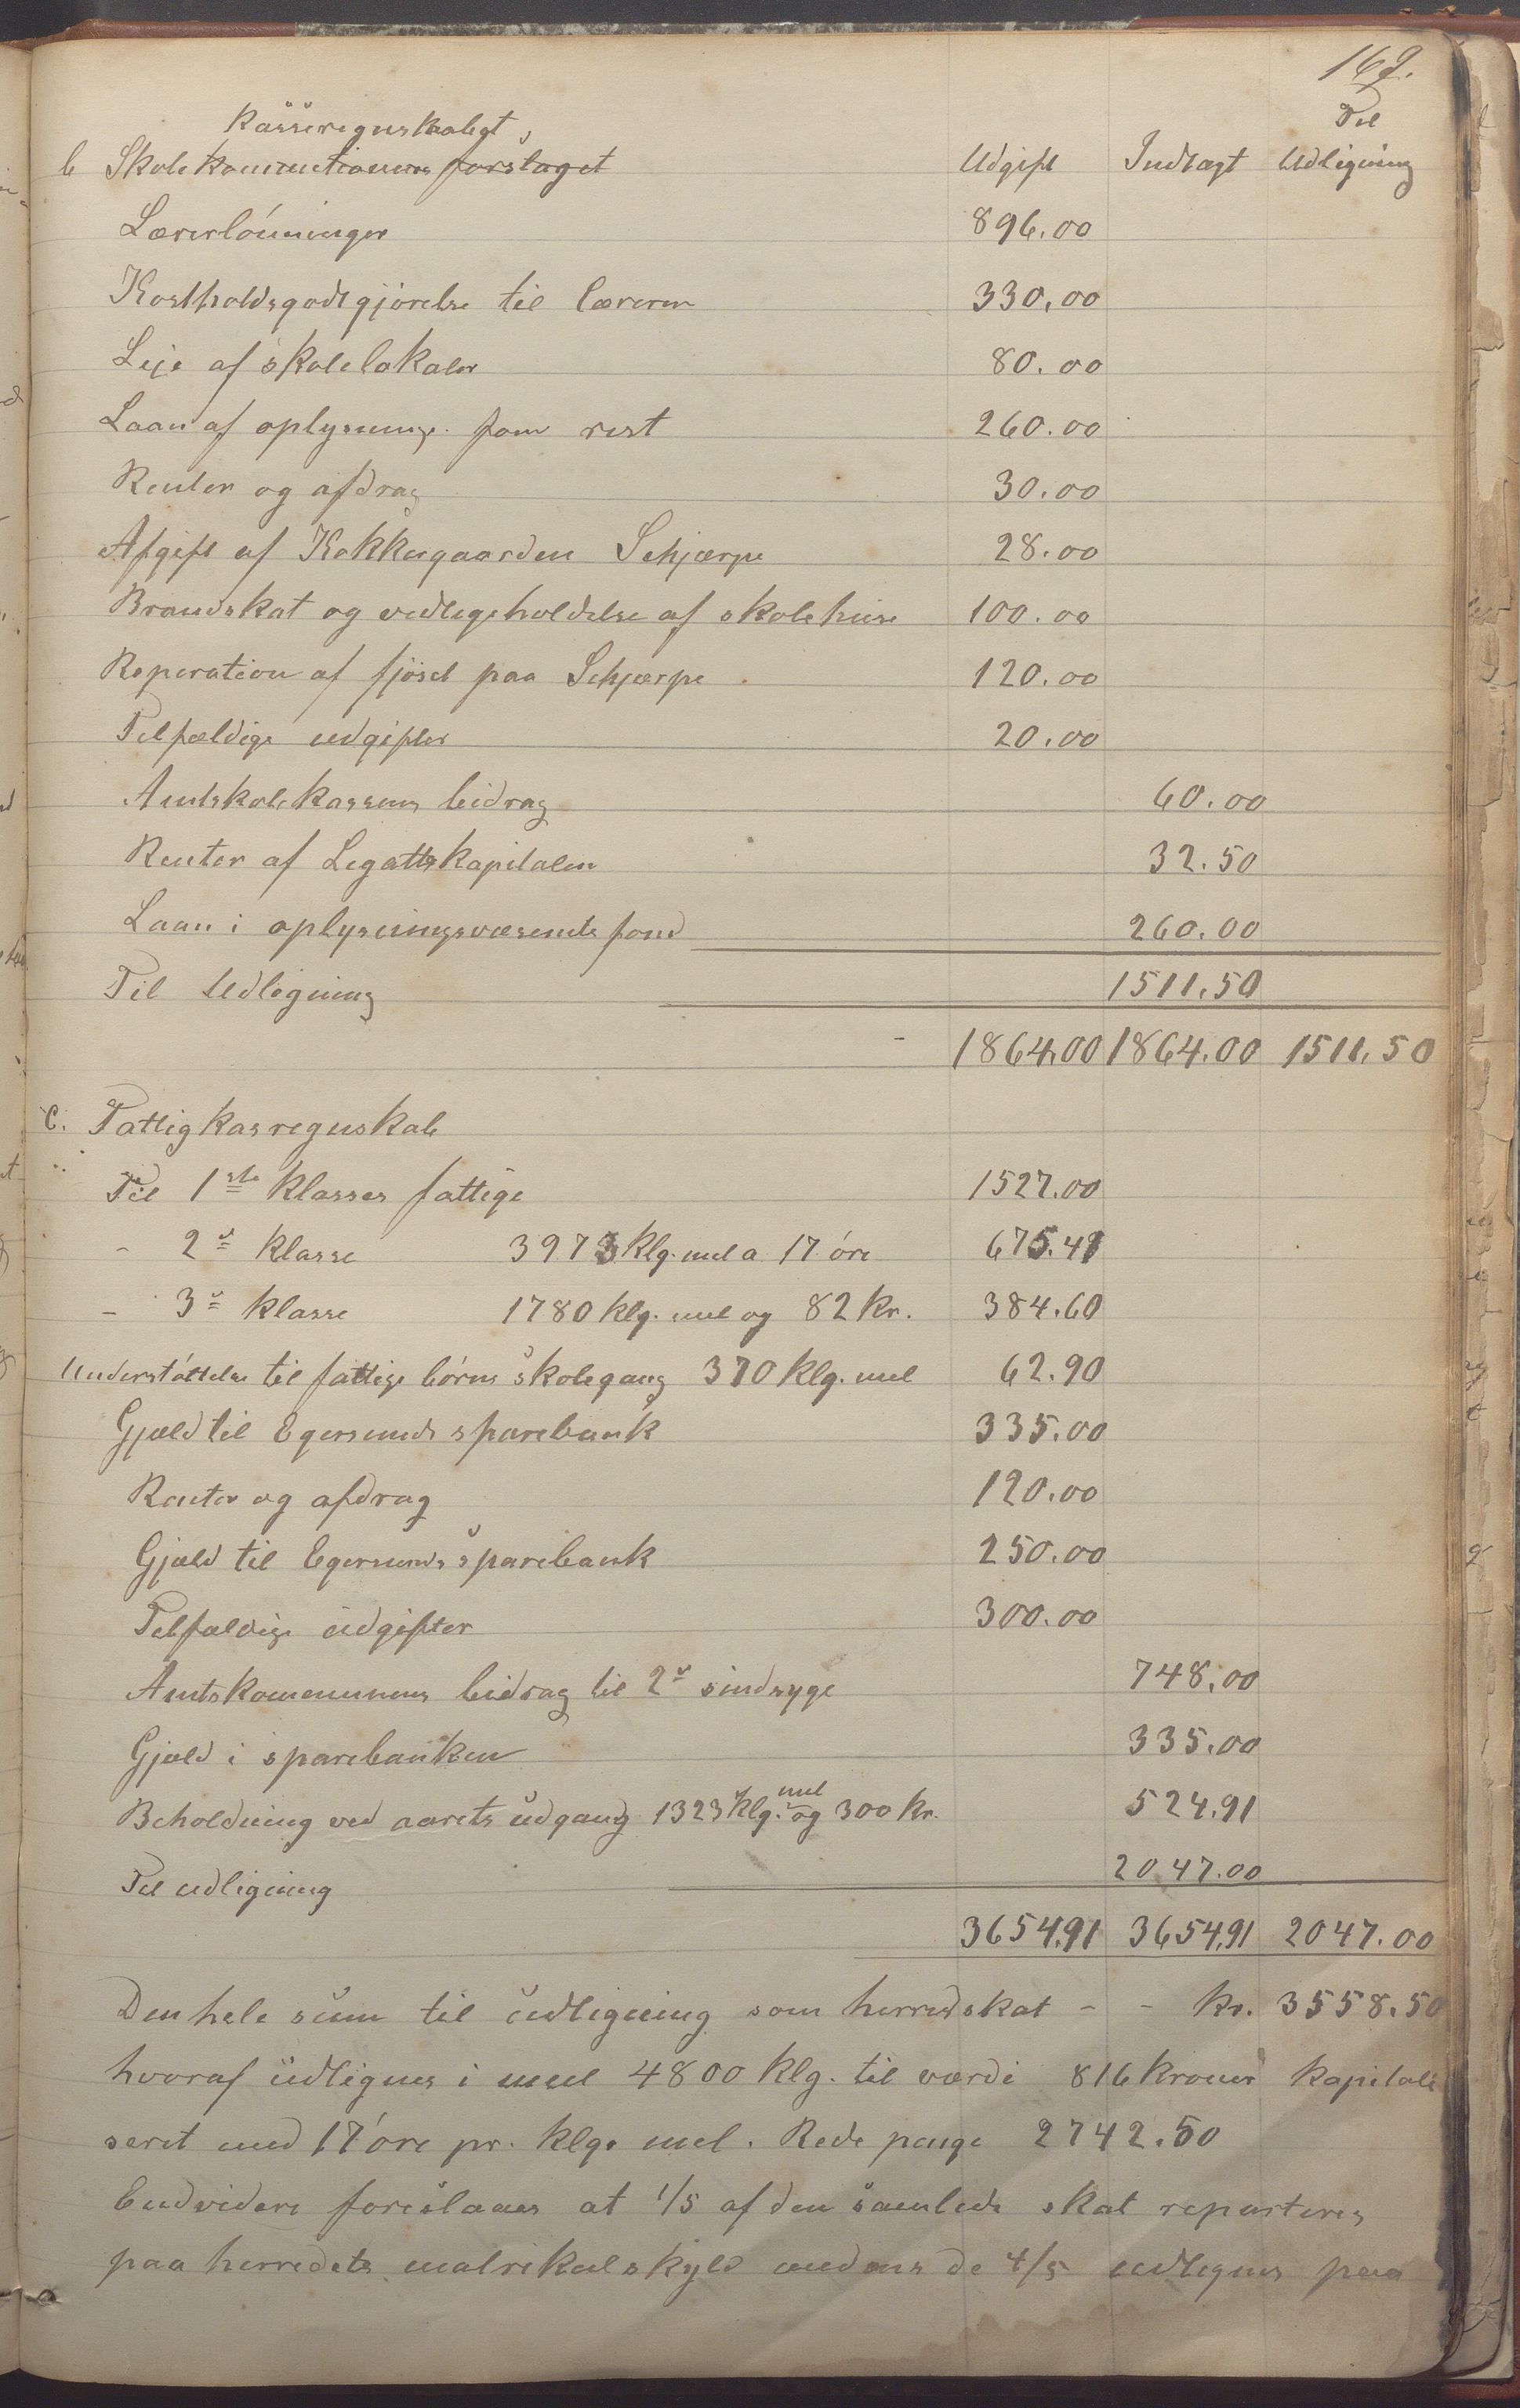 162.
Kasseregnskabet,
Til
b Skolekommunionens forslaget Udgift Indtægt Udligning
Lærerlønninger 896.00
Kostholdsgodtgjörelse til læreren 330.00
Leje af skolelokaler 80.00
Laan af oplysnings. fom rest 260.00
Renter og afdrag 30.00
Afgift af Klokkergaarden Schjærpe 28.00
Brandskat og vedligeholdelse af skolehuse 100.00
Reperation af fjöset paa Schjærpe 120.00
Tilfældige udgifter 20.00
Amtskolekassens bidrag 60.00
Renter af Legatskapitalen 32.50
Laan i oplysningsvæsenets fond 260.00
Til Udligning 1511.50
1864.00 1864.00 1511.50
C. Fattigkasregnskab
Til 1ste klasses fattige 1527.00
- 2den klasse 3973 klg. mel a 17 öre 675.41
- 3die klasse 1780 klg. mel og 82 kr. 384.60
Understöttelse til fattige börns skolegang 370 klg. mel 62.90
Gjæld til Egersunds sparebank 335.00
Renter og afdrag 120.00
Gjæld til Egersunds sparebank 250.00
Tilfældige udgifter 300.00
Amtskommunens bidrag til 2de sindsyge 748.00
Gjæld i sparebanken 335.00
Beholdning ved aarets udgang 1323 klg. mel og 300 kr. 524.91
Til udligning 2047.00
3654,91 3654,91 2047.00
Den hele sum til udligning som herredskat - - kr. 3558.50
hvoraf udlignes i mel 4800 klg. til værdi 816 kroner kapitali
seret med 17 öre pr. klg. mel. Rede penge 2742.50
Endvidere foreslaaes at 1/5 af den samlede skat reparteres
paa herredets matrikulskyld medens de 4/5 udlignes paa